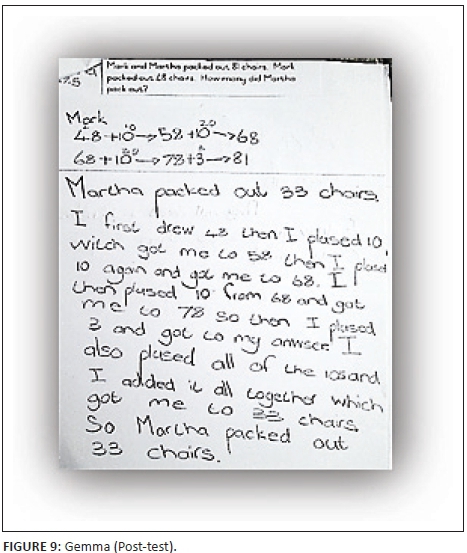 Mark and Martha packed out 81 chairs. Mark
packed out 48 chairs. How many did Martha
pack out?
Mark
10 20
48+10→58+10→68
30
68+10→78+3→81
Martha packed out 33 chairs.
I first drew 48 then I plused 10
witch got me to 58 then I plusd
10 again and got me to 68. I
then plused 10 from 68 and got
me to 78 so then I plused
3 and got to my anwser. I
also plused all of the 10s and
I added it all together which
got me to 33 chairs.
So Martha packed out
33 chairs.
FIGURE 9: Gemma (Post-test).